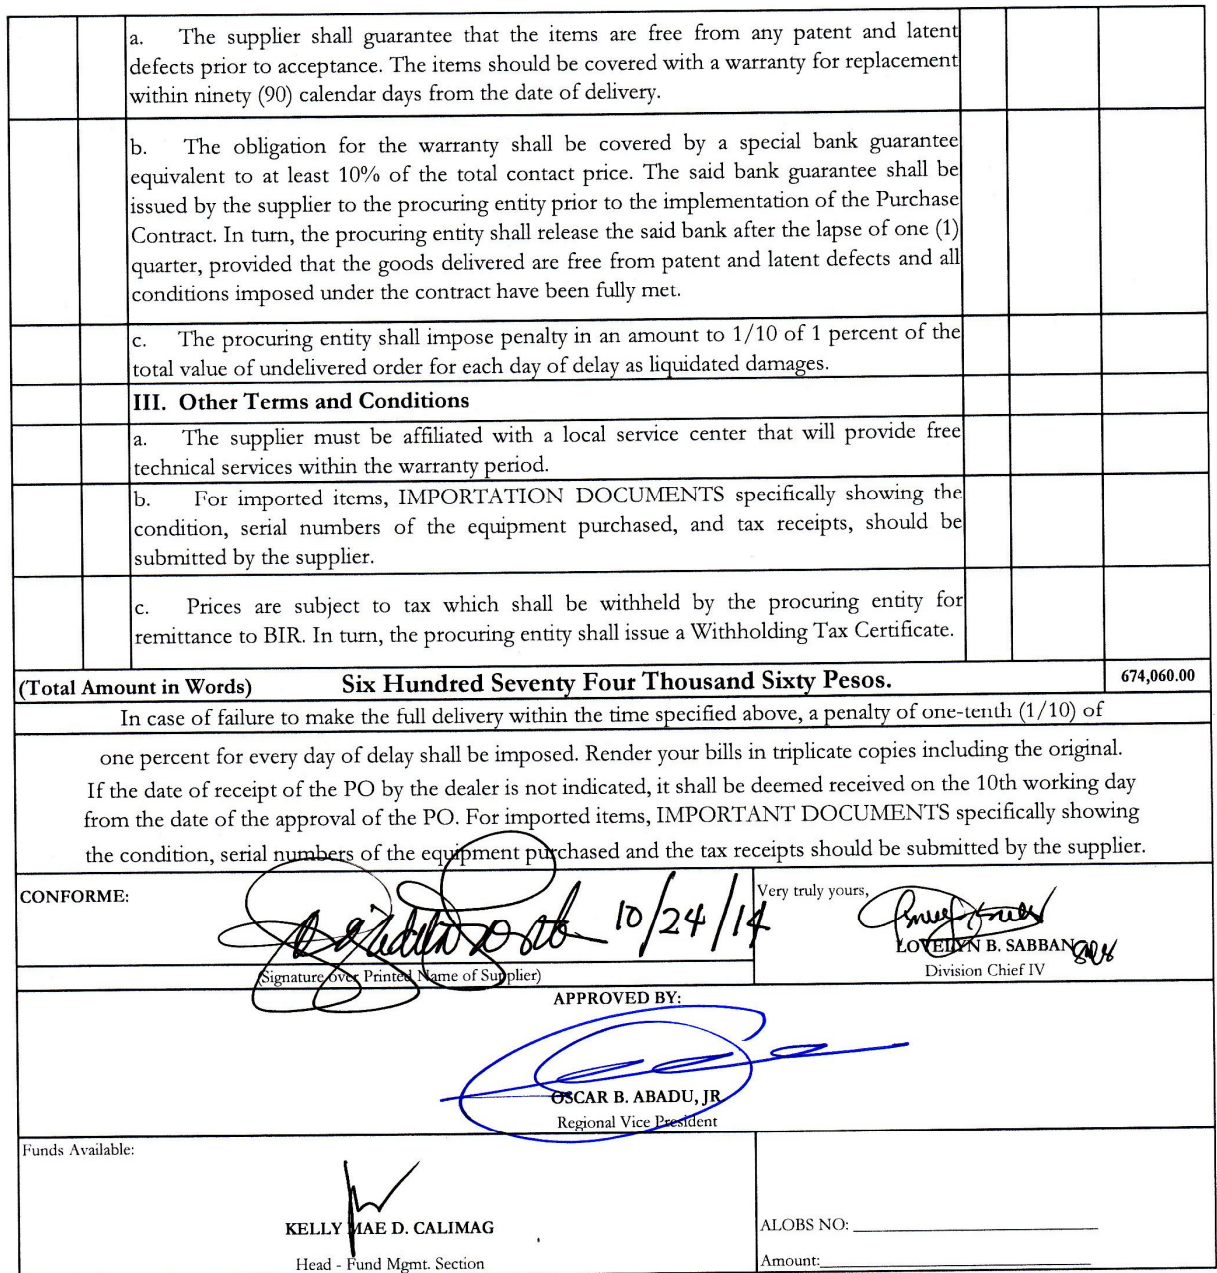 a. The supplier shall guarantee that the items are free from any patent and latent
defects prior to acceptance. The items should be covered with a warranty for replacement
within ninety (90) calendar days from the date of delivery.
b. The obligation for the warranty shall be covered by a special bank guarantee
equivalent to at least 10% of the total contact price. The said bank guarantee shall be
issued by the supplier to the procuring entity prior to the implementation of the Purchase
Contract. In turn, the procuring entity shall release the said bank after the lapse of one (1)
quarter, provided that the goods delivered are free from patent and latent defects and all
conditions imposed under the contract have been fully met.
c. The procuring entity shall impose penalty in an amount to 1/10 of 1 percent of the
total value of undelivered order for each day of delay as liquidated damages.
III. Other Terms and Conditions
a. The supplier must be affiliated with a local service center that will provide free
technical services within the warranty period.
b. For imported items, IMPORTATION DOCUMENTS specifically showing the
condition, serial numbers of the equipment purchased, and tax receipts, should be
submitted by the supplier.
c. Prices are subject to tax which shall be withheld by the procuring entity for
remittance to BIR. In turn, the procuring entity shall issue a Withholding Tax Certificate.
(Total Amount in Words) Six Hundred Seventy Four Thousand Sixty Pesos. 674,060.00
In case of failure to make the full delivery within the time specified above, a penalty of one-tenth (1/10) of
one percent for every day of delay shall be imposed. Render your bills in triplicate copies including the original.
If the date of receipt of the PO by the dealer is not indicated, it shall be deemed received on the 10th working day
from the date of the approval of the PO. For imported items, IMPORTANT DOCUMENTS specifically showing
the condition, serial numbers of the equipment purchased and the tax receipts should be submitted by the supplier.
CONFORME:
10/24/14
(Signature over Printed Name of Supplier)
Very truly yours,
LOVELYN B. SABBAN
Division Chief IV
APPROVED BY:
OSCAR B. ABADU, JR
Regional Vice President
Funds Available:
KELLY MAE D. CALIMAG
Head - Fund Mgmt. Section
ALOBS NO:
Amount: